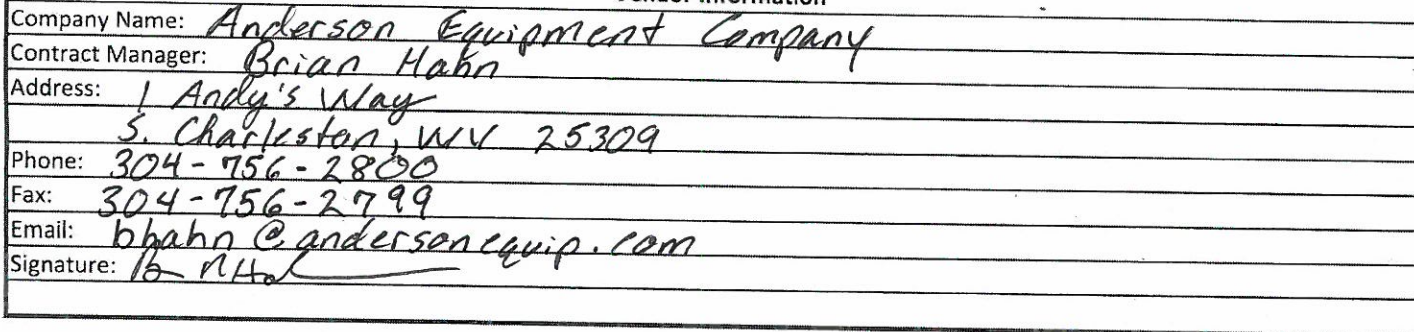 Vendor Information
Company Name: Anderson Equipment Company
Contract Manager: Brian Hahn
Address: 1 Andy's Way
S. Charleston, WV 25309
Phone: 304-756-2800
Fax: 304-756-2799
Email: bhahn@andersonequip.com
Signature: